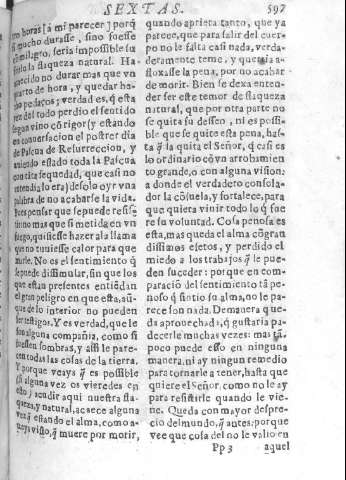 SEXTAS. 597
tro horas [a mi parecer] porq̃
si mucho durasse, sino fuesse
cõ milagro, seria impossible su
frirlo la flaqueza natural. Ha
acaecido no durar mas que vn
quarto de hora, y quedar ha-
ho pedaços; verdad es, q̃ esta
vez del todo perdio el sentido
segun vino cõ rigor (y estando
en conuersacion el postrer dia
de Pascua de Resurreccion, y
auiendo estado toda la Pascua
con tãta sequedad, que casi no
entendia lo era) desolo oyr vna
palabra de no acabarse la vida.
Pues pensar que sepuede resis-
tir no mas que si metida en vn
fuego, quisiesse hazer ala llama
que no tuuiesse calor para que
marle. No es el sentimiento q̃
se puede dissimular, sin que los
que estan presentes entiẽdan
el gran peligro en que esta, aũ-
que de lo interior no pueden
ser testigos. Y es verdad, que le
son alguna compañia, como si
fuessen sombras, y assi le pare-
cen todas las cosas de la tierra.
Y porque veays q̃ es possible
(si alguna vez os vieredes en
esto) acudir aqui nuestra fla-
queza, y natural, acaece alguna
vez q̃ estando el alma, como a-
ueys visto, q̃ muere por morir,
quando aprieta tanto, que ya
parece, que para salir del cuer-
po no le falta casi nada, verda-
deramente teme, y querria a-
floxasse la pena, por no acabar
de morir. Bien se dexa enten-
der ser este temor de flaqueza
natural, que por otra parte no
se quita su desseo, ni es possi-
ble que se quite esta pena, has-
ta q̃ la quita el Señor, q̃ casi es
lo ordinario cõ vn arrobamien
to grande, o con alguna vision:
a donde el verdadero consola-
dor la cõsuela, y fortalece, para
que quiera viuir todo lo q̃ fue
re su voluntad. Cosa penosa es
esta, mas queda el alma cõ gran
dissimos efetos, y perdido el
miedo a los trabajos q̃ le pue-
den suceder: porque en com-
paraciõ del sentimiento tã pe-
noso q̃ sintio su alma, no le pa-
rece son nada. De manera que-
da aprouechada, q̃ gustaria pa-
decerle muchas vezes: mas tã-
poco puede esso en ninguna
manera, ni ay ningun remedio
para tornarle a tener, hasta que
quiere el Señor, como no le ay
para resistirle quando le vie-
ne. Queda con mayor despre-
cio del mundo, q̃ antes: porque
vee que cosa del no le valio en
Pp 3 aquel